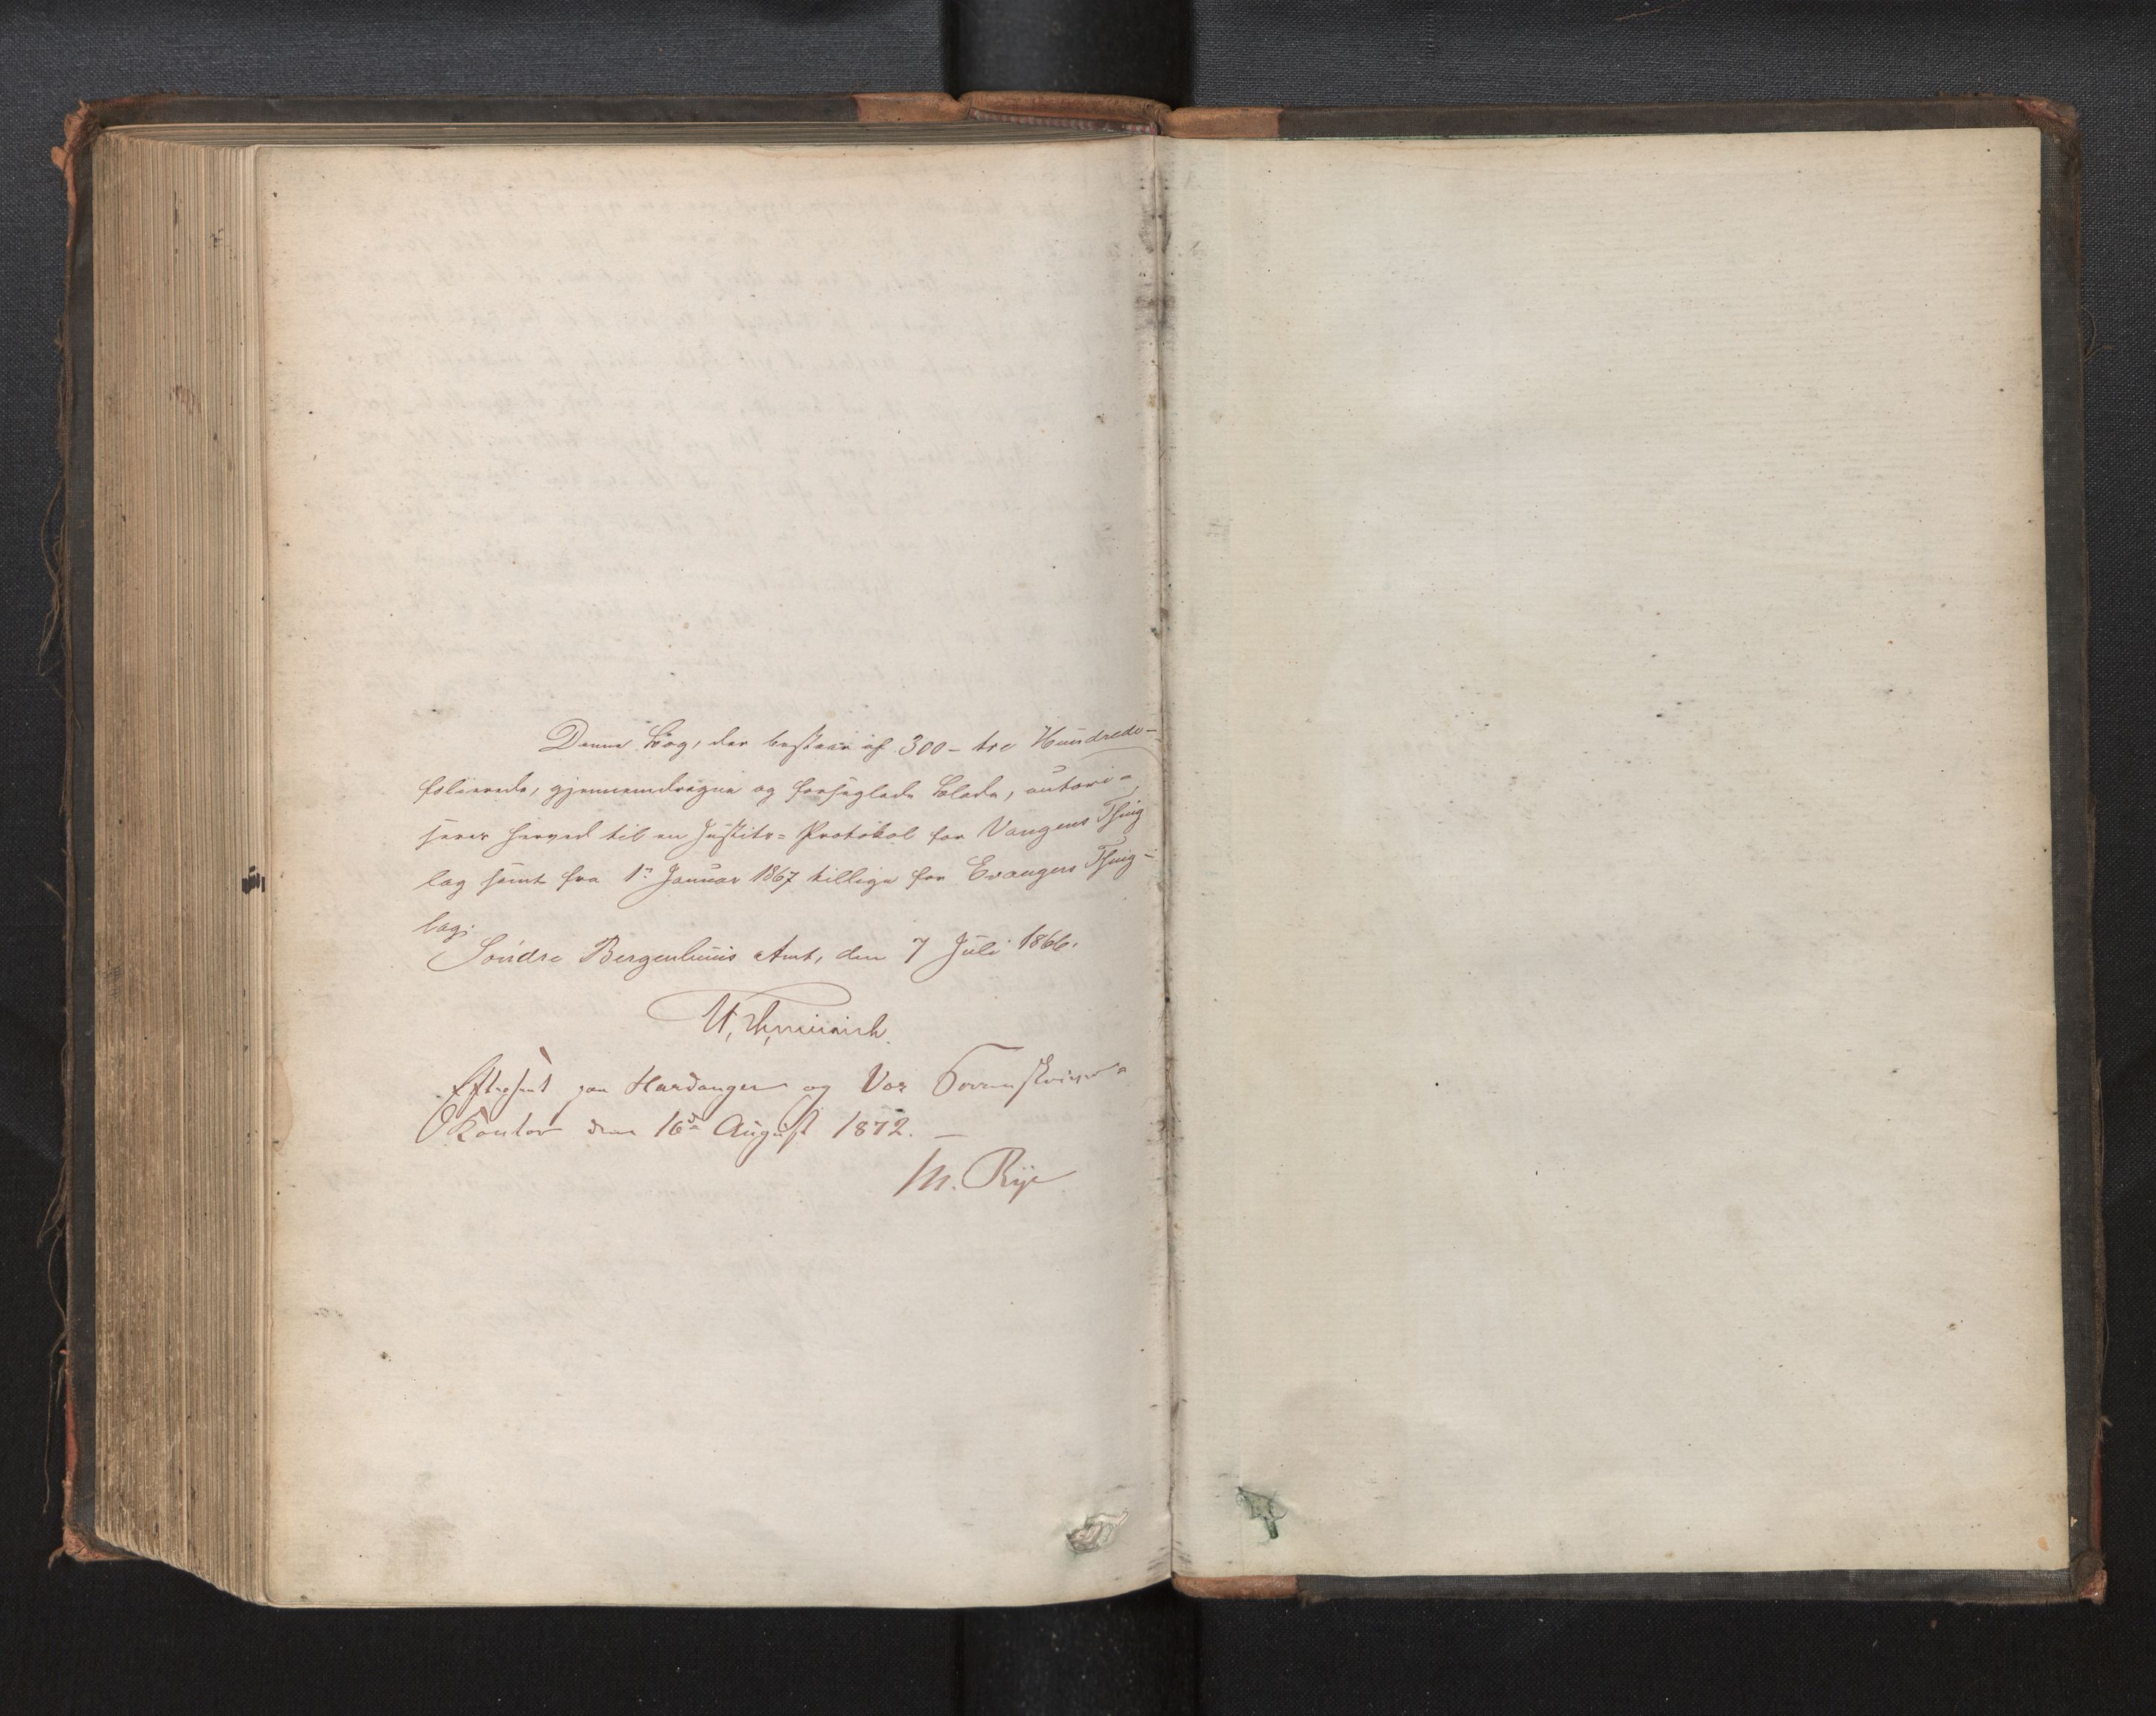 Denne Bog, der bestaar af 300 – tre Hundrede –
folierede, gjennemdragne og forseglede Blade, autori-
seres herved til en Justits- Protokol for Vangens Thing
lag samt fra 1ste Januar 1867 tillige for Evangers Thing-
lag.
Søndre Bergenhuus Amt, den 7 Juli 1866.
Efterseet paa Hardanger og Vos Sorenskriver-
Kontor den 16de August 1872. –
M. Rye